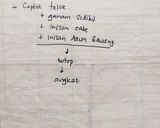 - Ceplok telor
+ garam sedikit
+ irisan cabe
+ irisan daun bawang
↓
tutup
↓
angkat